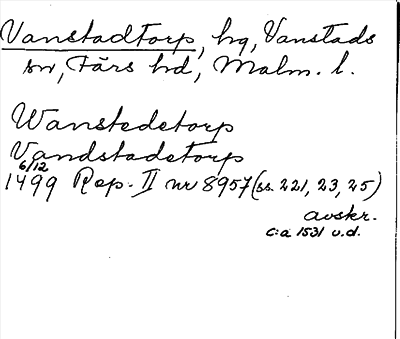 Vanstadtorp, hg, Vanstads
sn, Färs hd, Malm. l.
Wanstedetorp
Vandstadetorp
6/12
1499 Rep. II nr 8957 (ss. 221, 23, 25)
avskr.
c:a 1531 u.d.